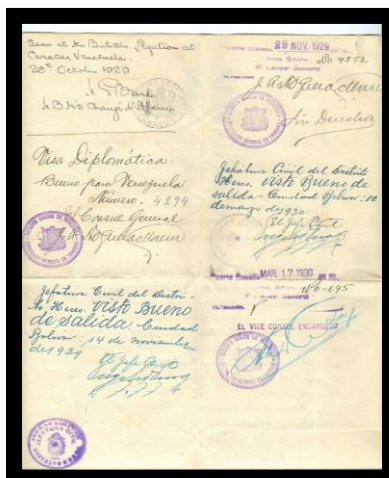 Seen at the British Legation at
Caracas Venezuela.
28th October 1929
H.B.M's Chargé d'Affaires
Visa Diplomática.
Bueno para Venezuela
Número. 4294
El Consul General
Jefatura Civil del Distri-
to Heres. Visto Bueno
de Salida. Ciudad
Bolívar: 14 de noviembre
de 1929
El Jefe Civil
29 NOV. 1929
Visto Bueno No 4552
El Consul General
Sin Derechos
Jefatura Civil del Distrito
Heres. Visto Bueno de
Salida - Ciudad Bolívar: 10
de marzo de 1930.
El Jefe Civil
Puerto España, MAR. 17 1930
No. 195
EL VICE CONSUL ENCARGADO